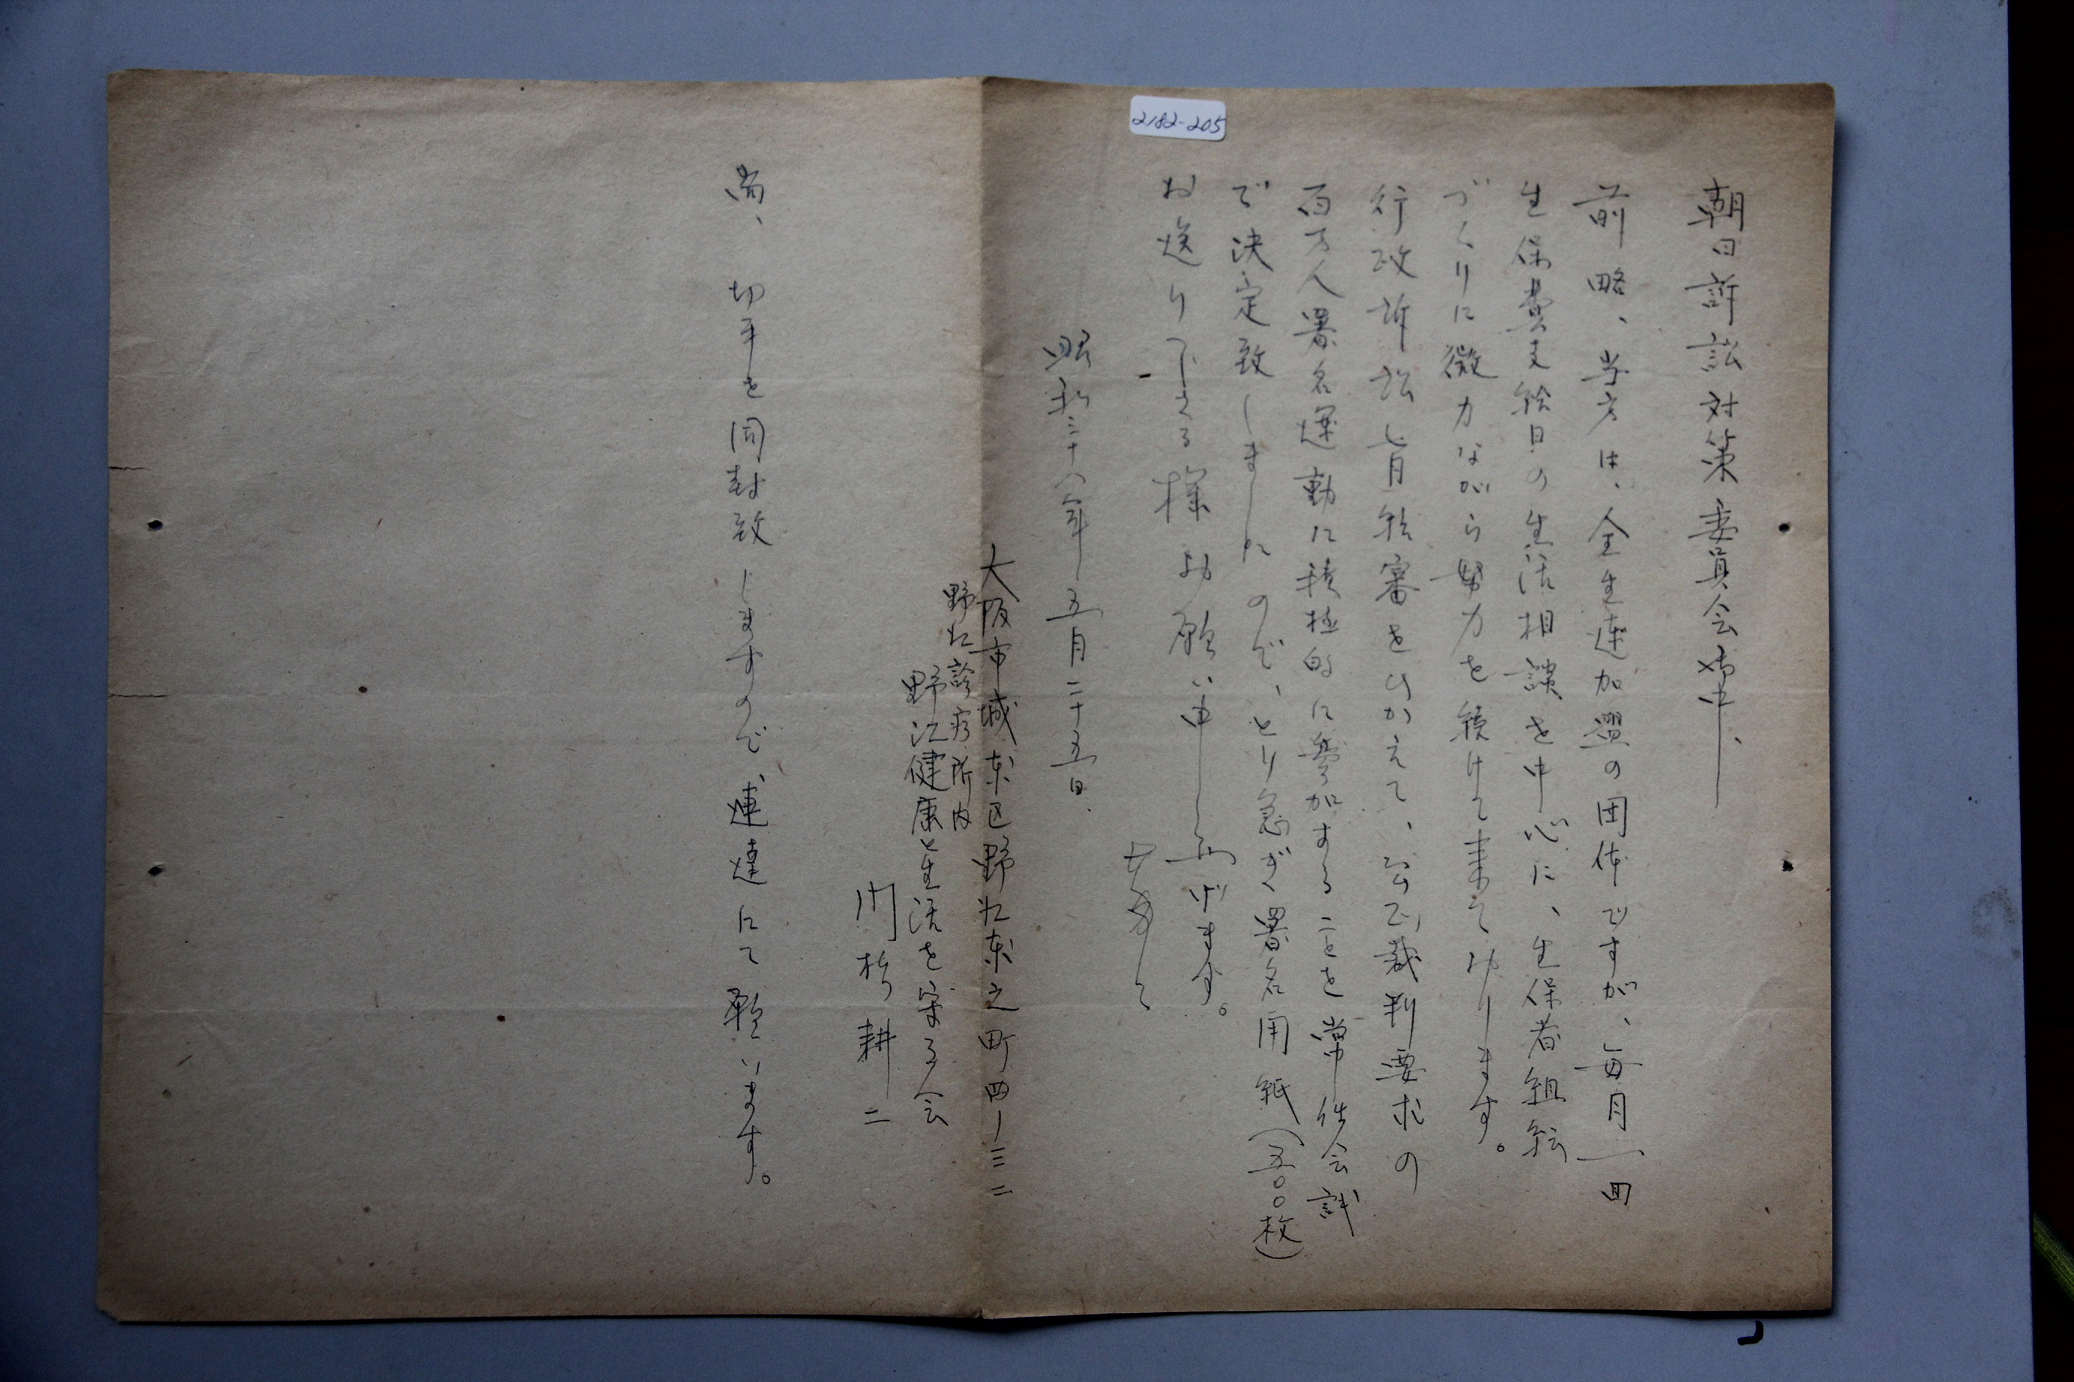 2182-205
朝日訴訟対策委員会御中、
前略、当方は、全生連加盟の団体ですが、毎月一回
生保費支給日の生活相談を中心に、生保者組織
づくりに微力ながら努力を続けて来ております。
行政訴訟七月結審をひかえて、公正裁判要求の
百万人署名運動に積極的に参加することを常任会議
で決定致しましたので、とり急ぎ署名用紙(五〇〇枚)
お送り下さる様お願い申し上げます。
昭和三十八年五月二十五日、
大阪市城東区野江東之町四ー三二
野江診療所内
野江健康と生活を守る会
川 耕二
尚、切手を同封致しますので速達にて願います。